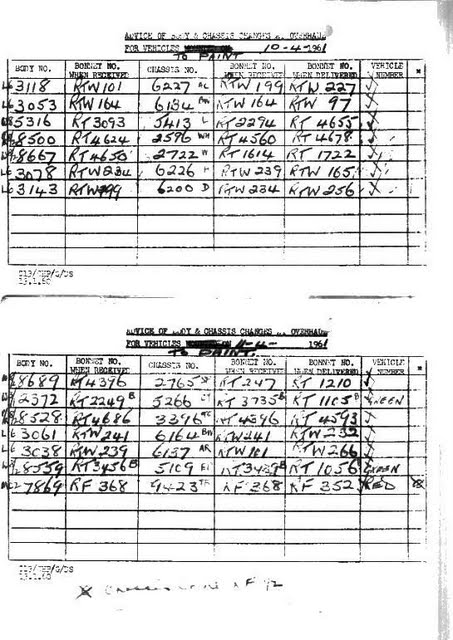 ADVICE OF BODY & CHASSIS CHANGES AT OVERHAUL
FOR VEHICLES TO PAINT 10-4-1961
BODY NO. BONNET NO. WHEN RECEIVED CHASSIS NO. BONNET NO. WHEN RECEIVED BONNET NO. WHEN DELIVERED VEHICLE NUMBER *
L6 3118 RTW 101 6227 RTW 199 RTW 227
L6 3053 RTW 164 6134 RTW 164 RTW 97
5316 RT 3093 5413 L RT 2294 RT 4655
8500 RT 4624 2596 WH RT 4560 RT 4678
8667 RT 4650 2722 W RT 1614 RT 1722
L6 3078 RTW 234 6226 RTW 239 RTW 165
L6 3143 RTW 99 6200 D RTW 234 RTW 256
13.1.60
ADVICE OF BODY & CHASSIS CHANGES AT OVERHAUL
FOR VEHICLES 11-4- 1961
TO PAINT.
BODY NO. BONNET NO. WHEN RECEIVED CHASSIS NO. BONNET NO. WHEN RECEIVED BONNET NO. WHEN DELIVERED VEHICLE NUMBER *
8689 RT 4396 2765 RT 247 RT 1210
2372 RT 2249 B 5266 CY RT 3735 B RT 1105 B GREEN
8528 RT 4686 3396 RT 4396 RT 4593
L6 3061 RTW 241 6164 RTW 241 RTW 232
L6 3038 RTW 239 6137 AR RTW 101 RTW 266
8559 RT 3456 B 5109 RT 3439 B RT 1056 GREEN
7869 RF 368 9423 RF 368 RF 352 RED
13.1.60